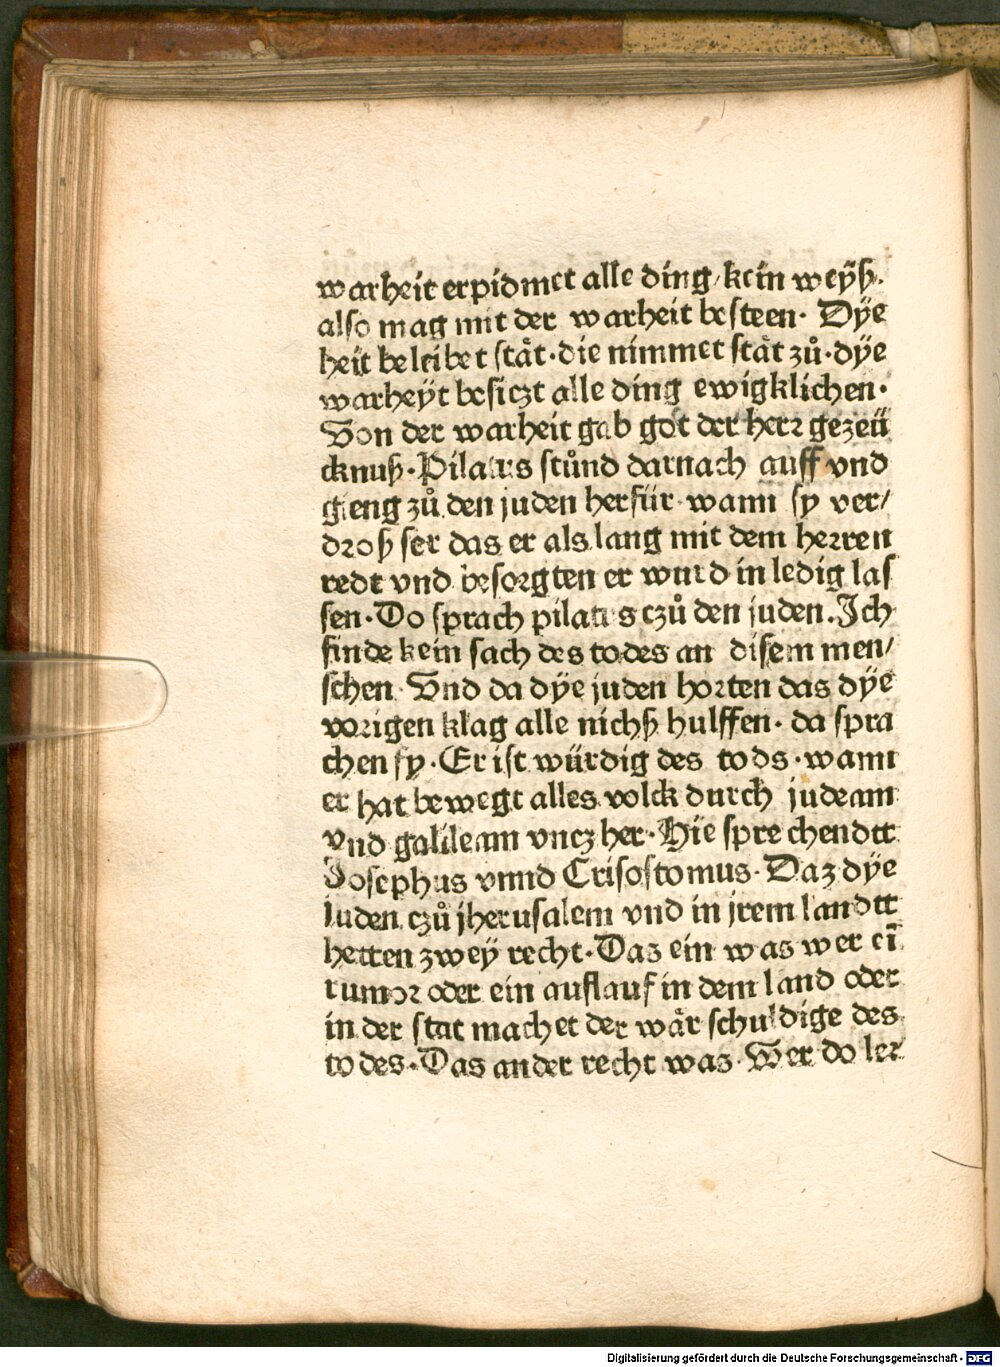 warheit erpidmet alle ding/kein weyß·
also mag mit der warheit besteen· Dÿe
heit beleibet stät·die nimmet stät zů·dÿe
warheÿt besiczt alle ding ewigklichen·
Von der warheit gab got der herr gezeü
cknuß·Pilatus stůnd darnach auff vnd
gieng zů den juden herfür·wann sy ver/
droß ser das er als lang mit dem herren
redt vnd besorgten er wurd in ledig las
sen·Do sprach pilatus czů den juden.Ich
finde kein sach des todes an disem men/
schen·Vnd da dÿe juden horten das dÿe
vorigen klag alle nichß hulffen· da spra
chen sy·Er ist würdig des tods·wann
er hat bewegt alles volck durch judeam
vnd galileam vncz her·Hie sprechendtt
Josephus vnnd Crisostomus·Daz dÿe
Juden czů jherusalem vnd in jrem landtt
hetten zweÿ recht·Das ein was wer eī
rumor oder ein auflauf in dem land oder
in der stat machet der wår schuldige des
todes·Das ander recht was·Wer do ler
Digitalisierung gefördert durch die Deutsche Forschungsgemeinschaft - DFG